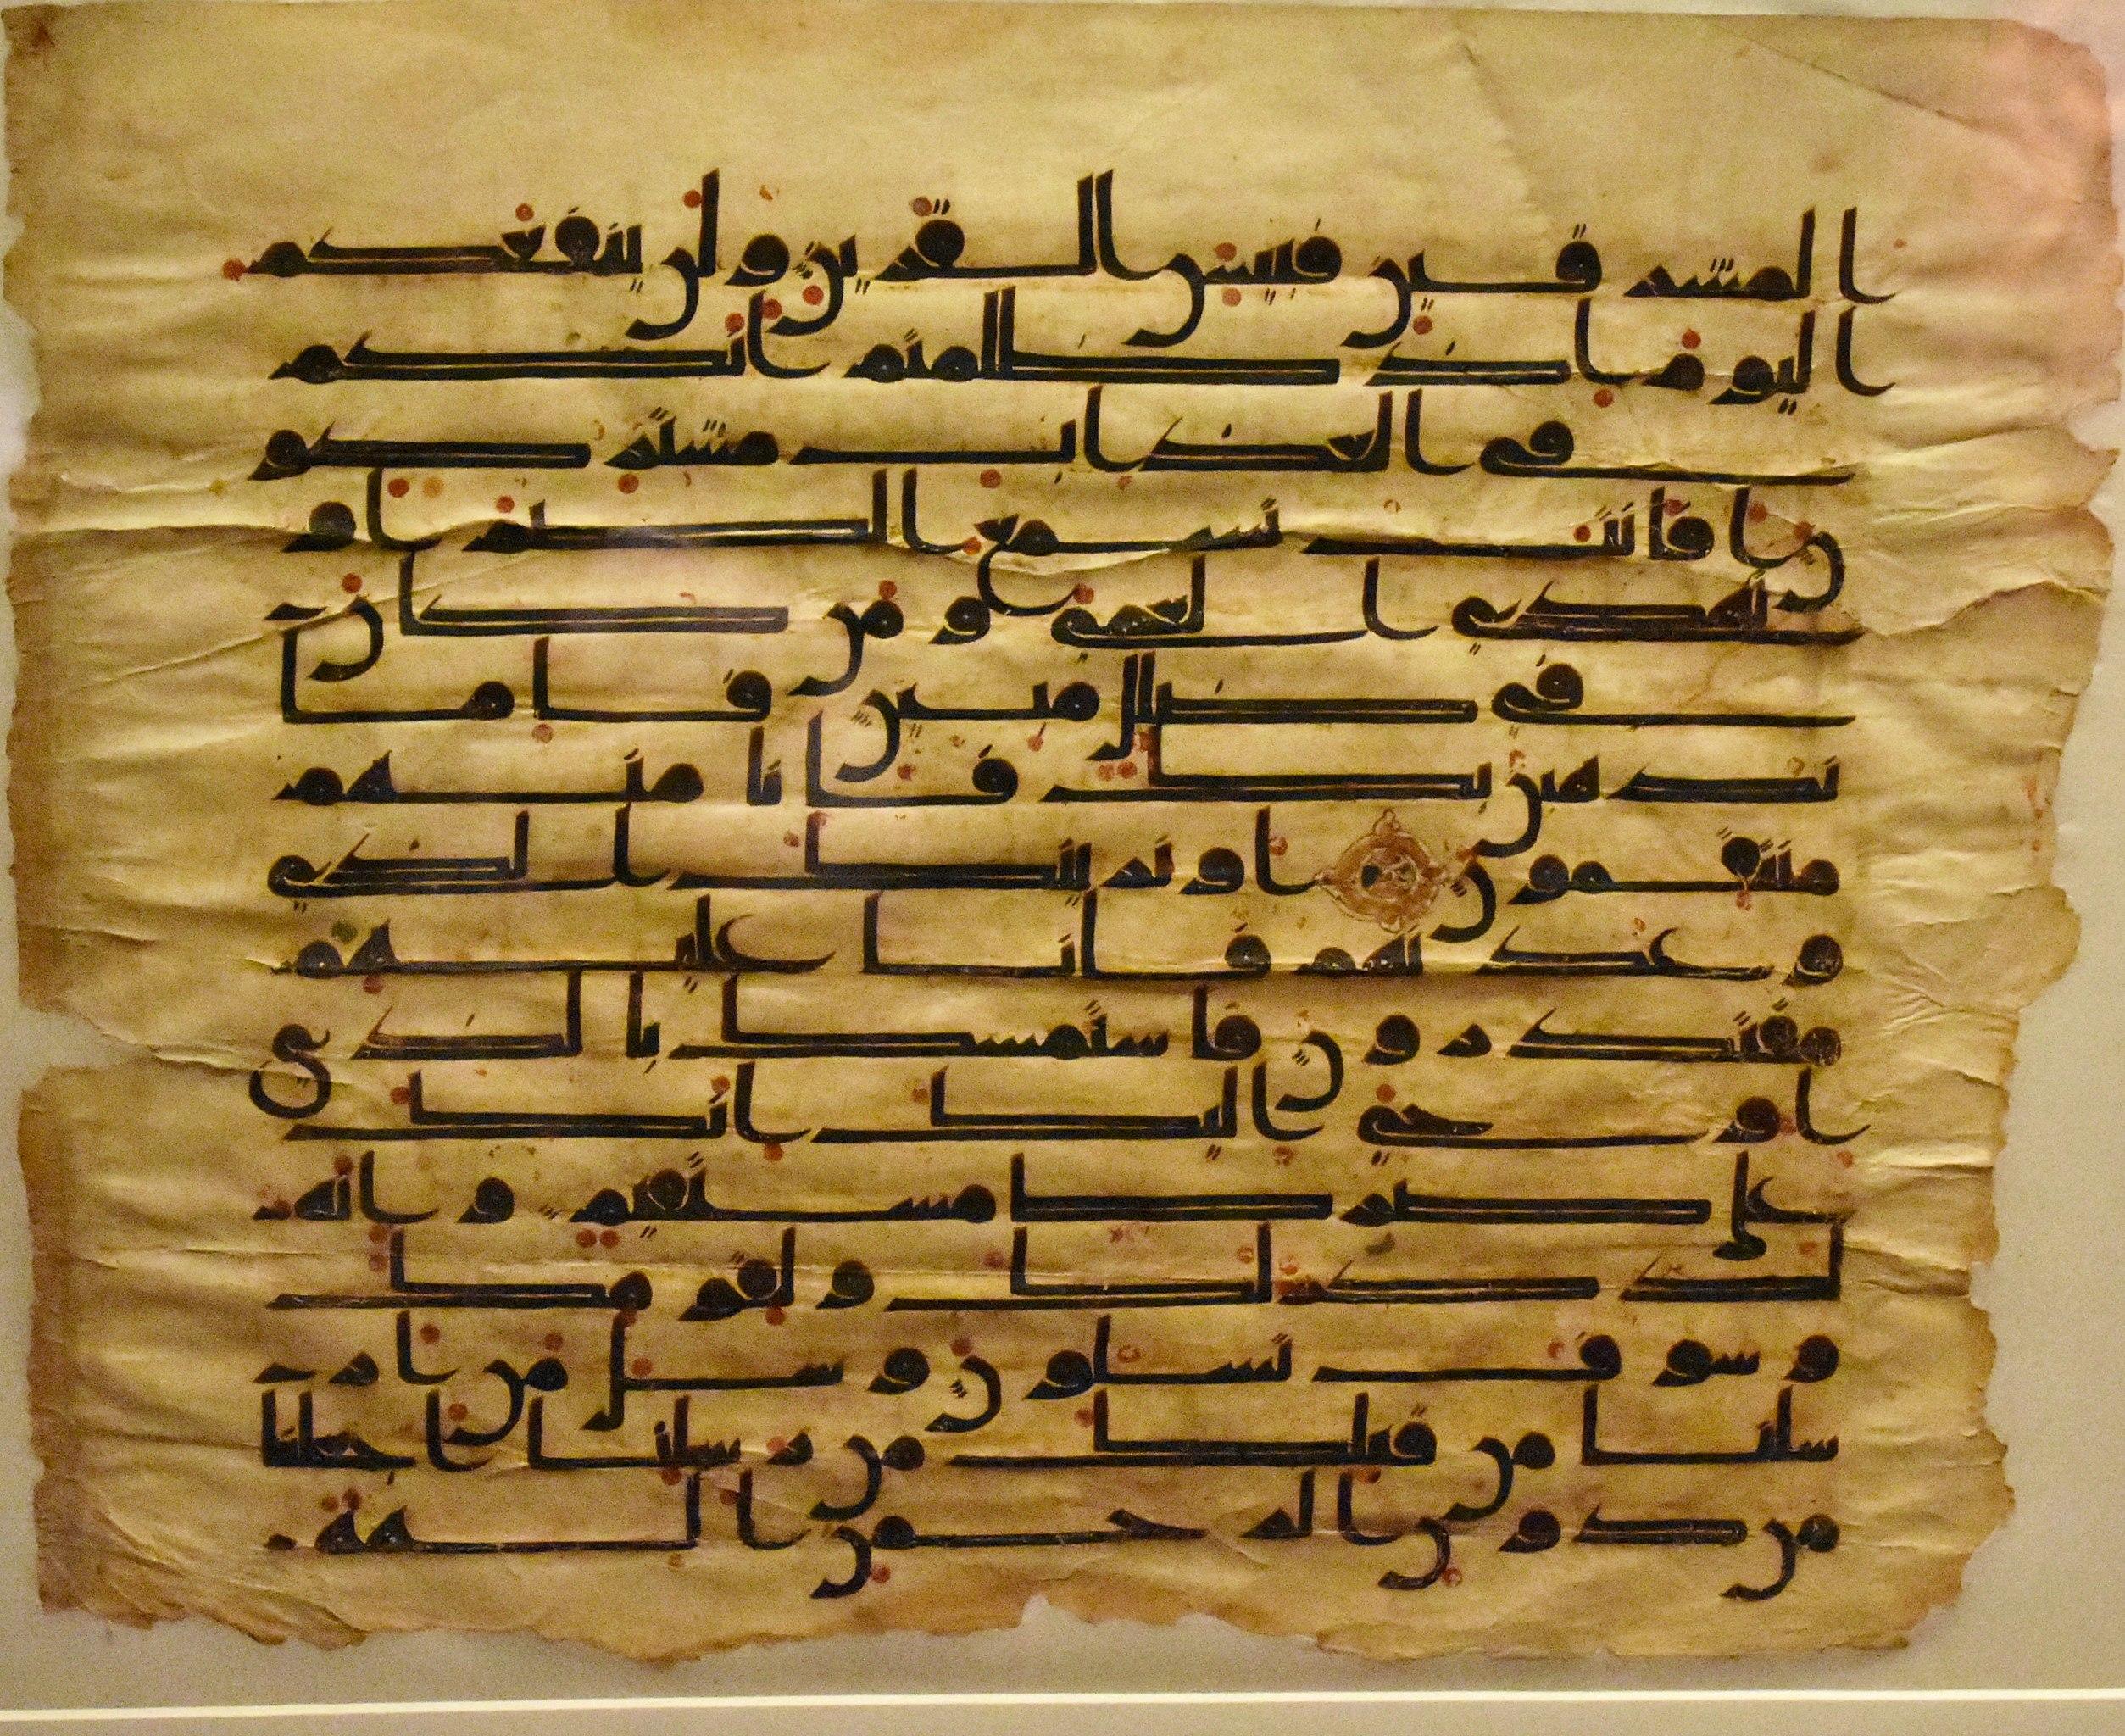 المشرقين فبيس القرين ولن ينفعكم
اليوم اذ ظلمتم انكم
في العذاب مشتركو
ن افانت تسمع الصم او
تهدي العمي ومن كان
في ضلل مبين فاما
نذهبن بك فانا منهم
منتقمون او نرينك الذي
وعدنهم فانا عليهم
مقتدرون فاستمسك بالذي
اوحي اليك انك
على صرط مستقيم وانه
لذكر لك ولقومك
وسوف تسلون وسل من ار
سلنا من قبلك من رسلنا اجعلنا
من دون الرحمن الهة